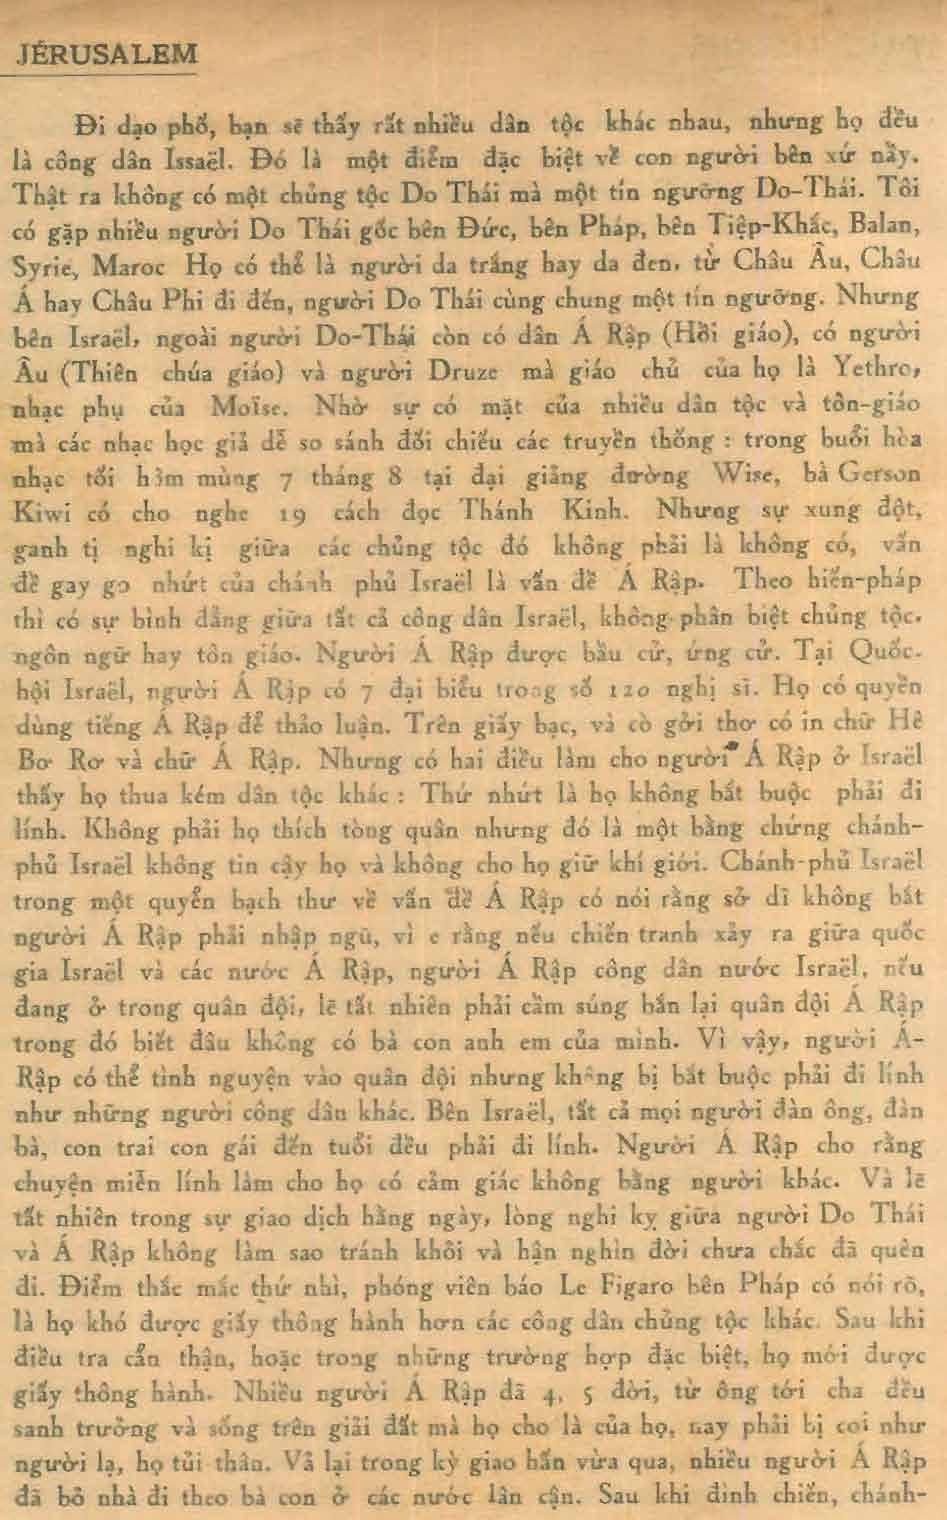 JÉRUSALEM
Đi dạo phố, bạn sẽ thấy rất nhiều dân tộc khác nhau, nhưng họ đều
là công dân Issaël. Đó là một điểm đặc biệt về con người bên xứ nầy.
Thật ra không có một chủng tộc Do Thái mà một tín ngưỡng Do-Thái. Tôi
có gặp nhiều người Do Thái gốc bên Đức, bên Pháp, bên Tiệp-Khắc, Balan,
Syrie, Maroc Họ có thể là người da trắng hay da đen, từ Châu Âu, Châu
Á hay Châu Phi đi đến, người Do Thái cùng chung một tín ngưỡng. Nhưng
bên Israël, ngoài người Do-Thái còn có dân Á Rập (Hồi giáo), có người
Âu (Thiên chúa giáo) và người Druze mà giáo chủ của họ là Yethro,
nhạc phụ của Moïse. Nhờ sự có mặt của nhiều dân tộc và tôn-giáo
mà các nhạc học giả dễ so sánh đối chiếu các truyền thống : trong buổi hòa
nhạc tối hôm mùng 7 tháng 8 tại đại giảng đường Wise, bà Gerson
Kiwi có cho nghe 19 cách đọc Thánh Kinh. Nhưng sự xung đột,
ganh tị nghi kị giữa các chủng tộc đó không phải là không có, vấn
đề gay go nhứt của chánh phủ Israël là vấn đề Á Rập. Theo hiến-pháp
thì có sự bình đẳng giữa tất cả công dân Israël, không phân biệt chủng tộc.
ngôn ngữ hay tôn giáo. Người Á Rập được bầu cử, ứng cử. Tại Quốc-
hội Israël, người Á Rập có 7 đại biểu trong số 120 nghị sĩ. Họ có quyền
dùng tiếng Á Rập để thảo luận. Trên giấy bạc, và cò gởi thơ có in chữ Hê
Bơ Rơ và chữ Á Rập. Nhưng có hai điều làm cho người Á Rập ở Israël
thấy họ thua kém dân tộc khác : Thứ nhứt là họ không bắt buộc phải đi
lính. Không phải họ thích tòng quân nhưng đó là một bằng chứng chánh-
phủ Israël không tin cậy họ và không cho họ giữ khí giới. Chánh-phủ Israël
trong một quyển bạch thư về vấn đề Á Rập có nói rằng sở dĩ không bắt
người Á Rập phải nhập ngũ, vì e rằng nếu chiến tranh xảy ra giữa quốc
gia Israël và các nước Á Rập, người Á Rập công dân nước Israël, nếu
đang ở trong quân đội, lẽ tất nhiên phải cầm súng bắn lại quân đội Á Rập
trong đó biết đâu không có bà con anh em của mình. Vì vậy, người Á-
Rập có thể tình nguyện vào quân đội nhưng không bị bắt buộc phải đi lính
như những người công dân khác. Bên Israël, tất cả mọi người đàn ông, đàn
bà, con trai con gái đến tuổi đều phải đi lính. Người Á Rập cho rằng
chuyện miễn lính làm cho họ có cảm giác không bằng người khác. Và lẽ
tất nhiên trong sự giao dịch hằng ngày, lòng nghi kỵ giữa người Do Thái
và Á Rập không làm sao tránh khỏi và hận nghìn đời chưa chắc đã quên
đi. Điểm thắc mắc thứ nhì, phóng viên báo Le Figaro bên Pháp có nói rõ,
là họ khó được giấy thông hành hơn các công dân chủng tộc khác. Sau khi
điều tra cẩn thận, hoặc trong những trường hợp đặc biệt, họ mới được
giấy thông hành. Nhiều người Á Rập đã 4, 5 đời, từ ông tới cha đều
sanh trưởng và sống trên giải đất mà họ cho là của họ, nay phải bị coi như
người lạ, họ tủi thân. Vả lại trong kỳ giao hấn vừa qua, nhiều người Á Rập
đã bỏ nhà đi theo bà con ở các nước lân cận. Sau khi đình chiến, chánh-